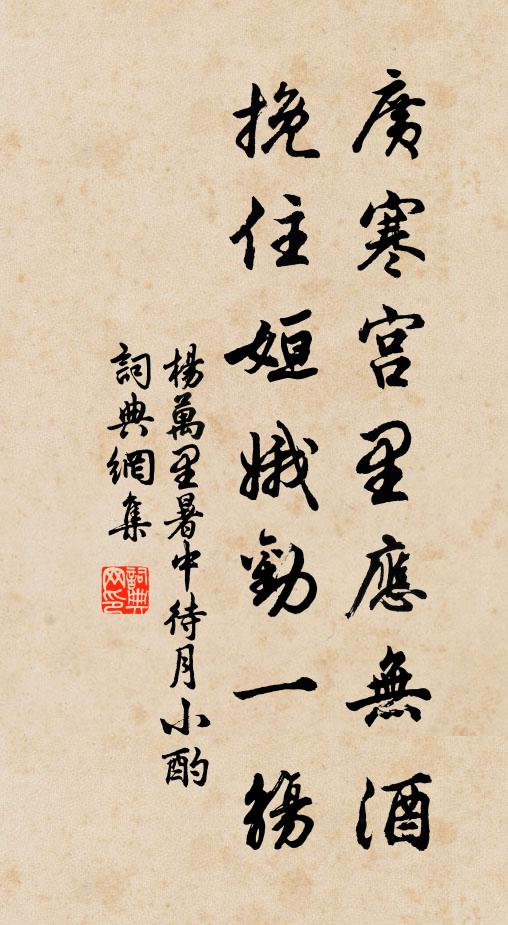 廣寒宮里應無酒
挽住姮娥勸一觴
楊萬里暑中待月小酌
詞典網集
詞典网印